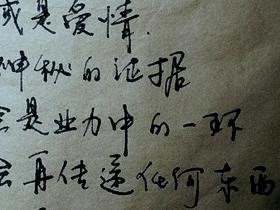 或是爱情.
神秘的证据
会是业力中的一环
会再传递任何东西